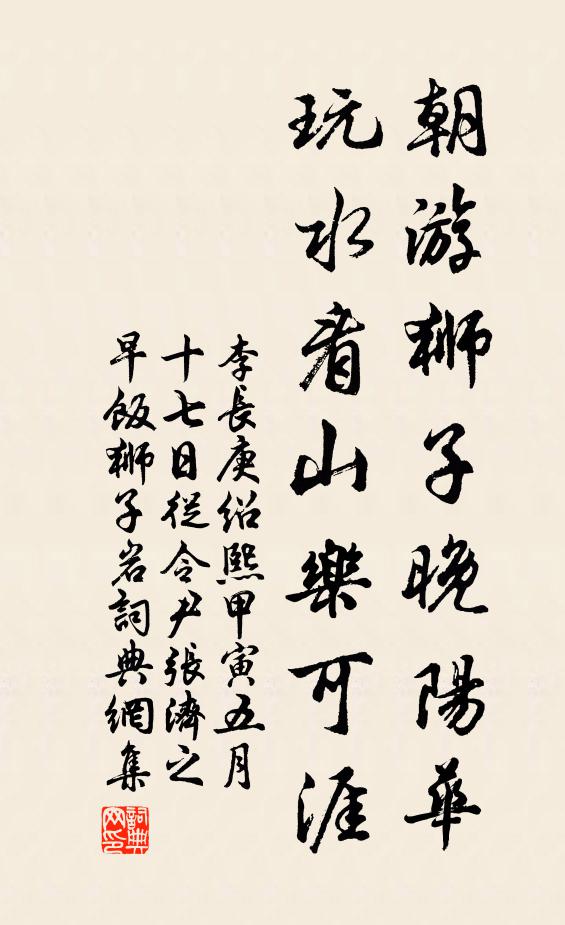 朝游獅子晚陽華
玩水看山樂可涯
李長庚紹熙甲寅五月
十七日從令尹張濟之
早飯獅子岩詞典網集
詞典网印